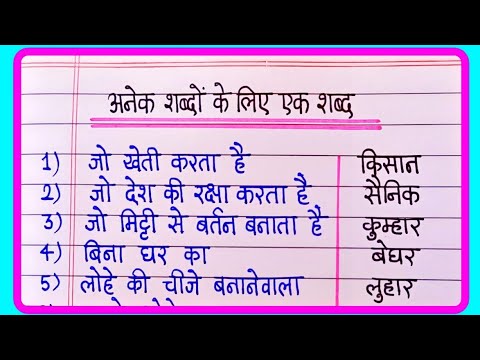 अनेक शब्दों के लिए एक शब्द
1) जो खेती करता है किसान
2) जो देश की रक्षा करता है सैनिक
3) जो मिट्टी से बर्तन बनाता है कुम्हार
4) बिना घर का बेघर
5) लोहे की चीजे बनानेवाला लुहार